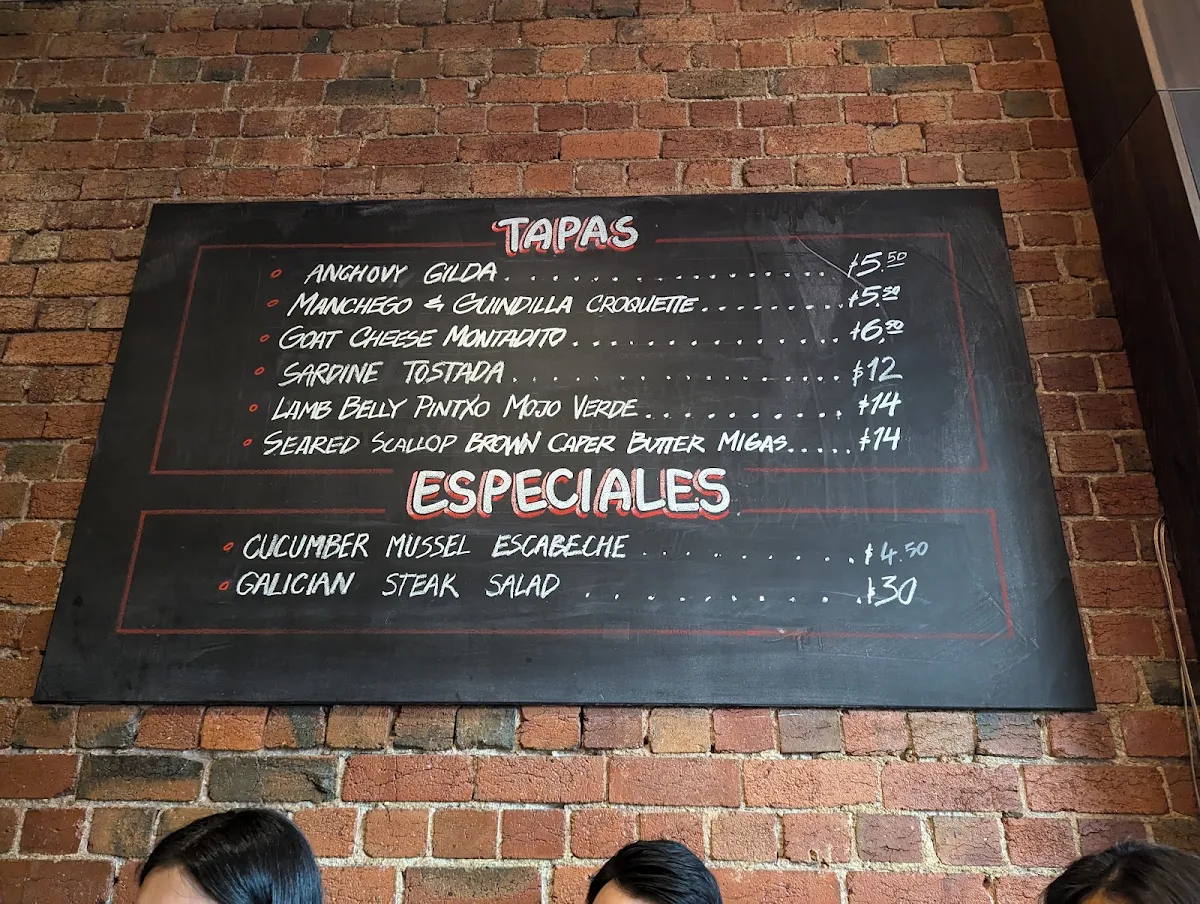 TAPAS
ANCHOVY GILDA . . . . . . . . . . . . . . . . . $5.50
MANCHEGO & GUINDILLA CROQUETTE . . . . . . . . . $5.50
GOAT CHEESE MONTADITO . . . . . . . . . . . . . . $6.50
SARDINE TOSTADA . . . . . . . . . . . . . . . . . $12
LAMB BELLY PINTXO MOJO VERDE . . . . . . . . . . . $14
SEARED SCALLOP BROWN CAPER BUTTER MIGAS . . . . . $14
ESPECIALES
CUCUMBER MUSSEL ESCABECHE . . . . . . . . . . $4.50
GALICIAN STEAK SALAD . . . . . . . . . . $30